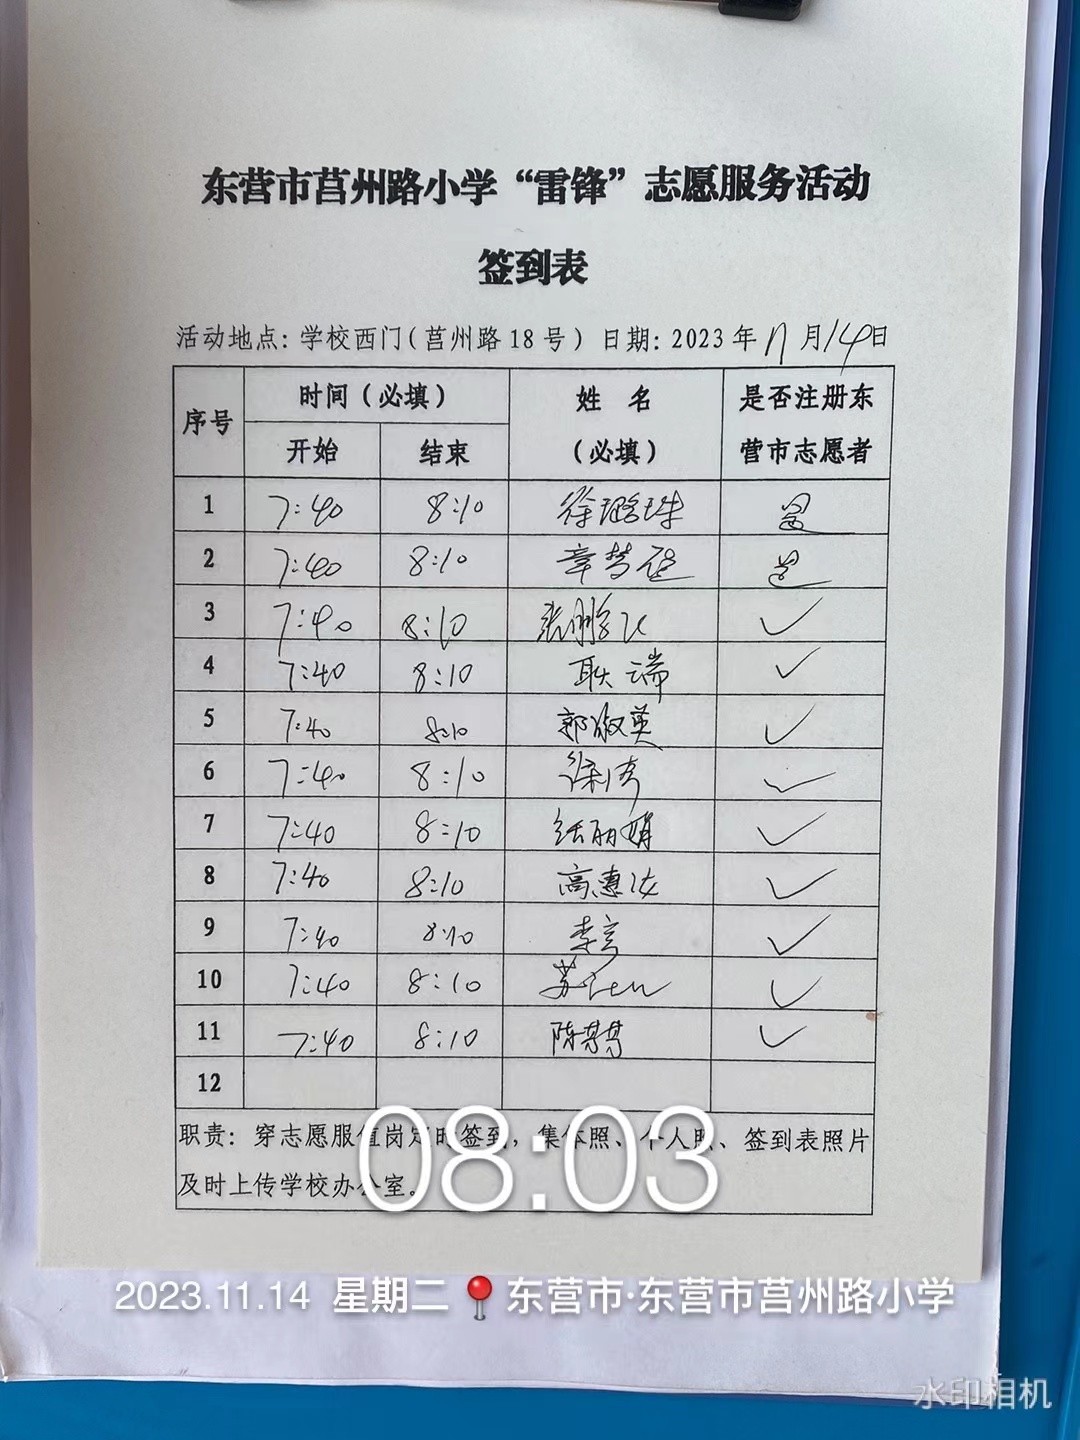 东营市莒州路小学“雷锋”志愿服务活动
签到表
活动地点：学校西门（莒州路18号）日期：2023年11月14日
序号 时间（必填） 姓名（必填） 是否注册东营市志愿者
开始 结束
1 7:40 8:10 徐璐珠 是
2 7:40 8:10 章梦 是
3 7:40 8:10 张鹏飞 ✓
4 7:40 8:10 耿端 ✓
5 7:40 8:10 郭淑英 ✓
6 7:40 8:10 徐倩 ✓
7 7:40 8:10 张丽娟 ✓
8 7:40 8:10 高惠 ✓
9 7:40 8:10 李 ✓
10 7:40 8:10 苏 ✓
11 7:40 8:10 陈 ✓
12
职责：穿志愿服值岗定时签到，集体照、个人照、签到表照片
及时上传学校办公室。
08:03
2023.11.14 星期二 📍东营市·东营市莒州路小学
水印相机